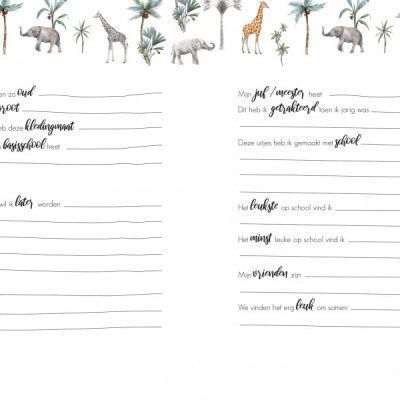 en zo oud
groot
eb deze kledingmaat
basisschool heet
wil ik later worden
Mijn juf / meester heet
Dit heb ik getrakteerd toen ik jarig was
Deze uitjes heb ik gemaakt met school
Het leukste op school vind ik
Het minst leuke op school vind ik
Mijn vrienden zijn
We vinden het erg leuk om samen